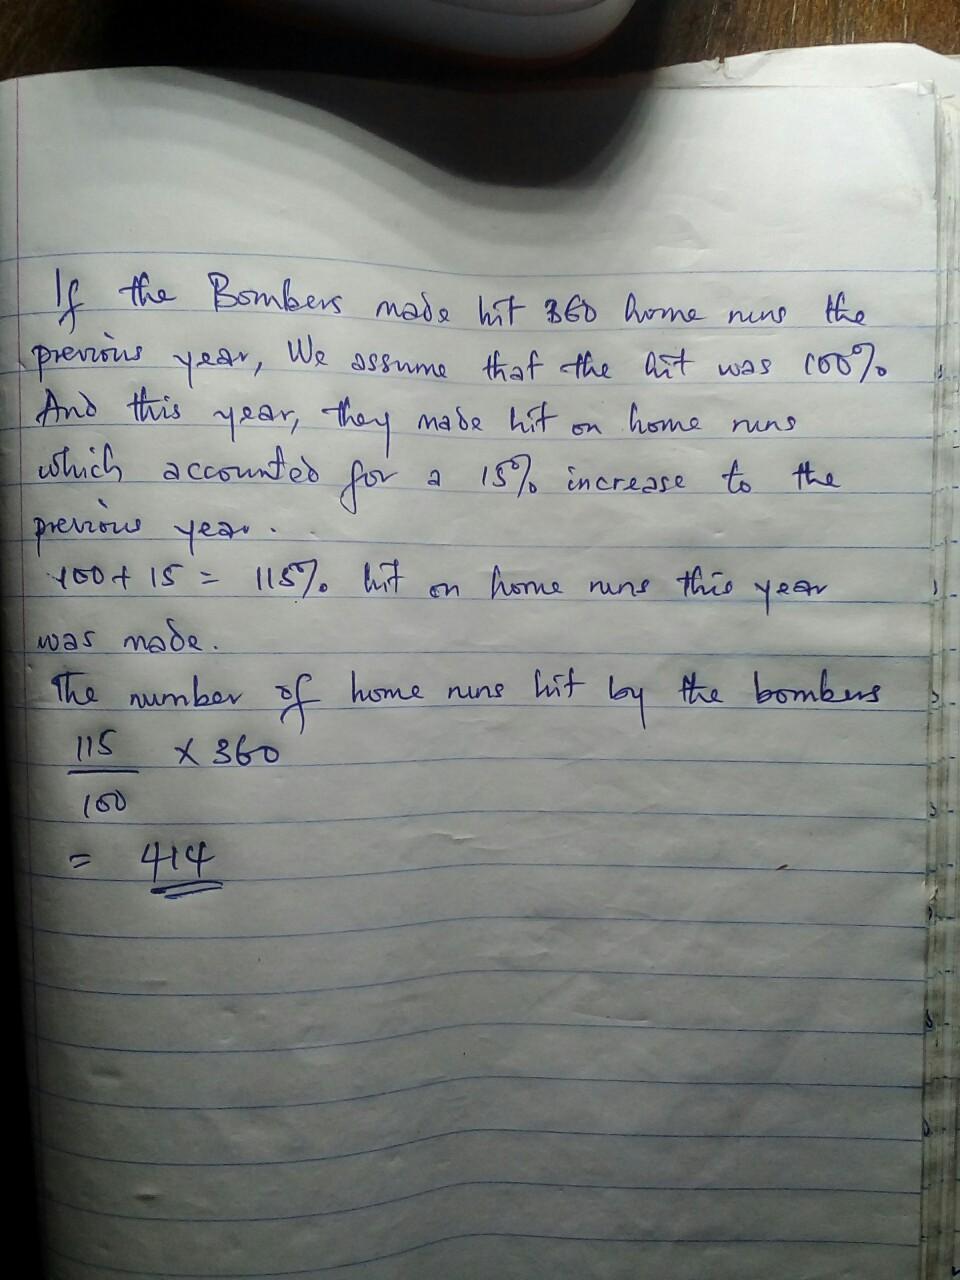 If the Bombers made hit 360 home runs the
previous year, We assume that the hit was 100%
And this year, they made hit on home runs
which accounted for a 15% increase to the
previous year.
100 + 15 = 115% hit on home runs this year
was made.
The number of home runs hit by the bombers
115 x 360
100
= 414